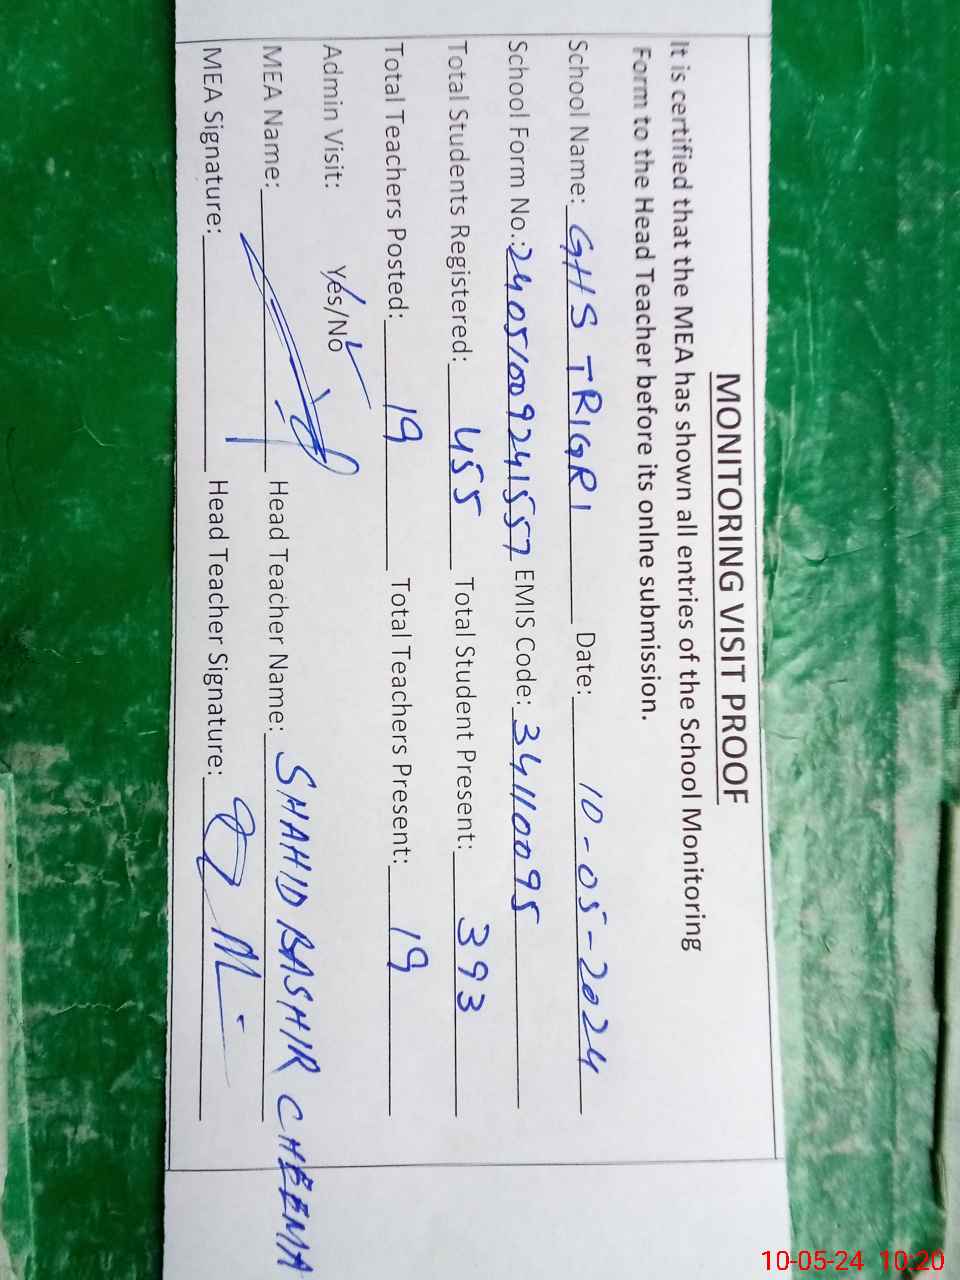 MONITORING VISIT PROOF
It is certified that the MEA has shown all entries of the School Monitoring
Form to the Head Teacher before its onlne submission.
School Name: GHS TRIGRI Date: 10-05-2024
School Form No.: 24051009241557 EMIS Code: 34110095
Total Students Registered: 455 Total Student Present: 393
Total Teachers Posted: 19 Total Teachers Present: 19
Admin Visit: Yes/No
MEA Name: Head Teacher Name: SHAHID BASHIR CHEEMA
MEA Signature: Head Teacher Signature:
10-05-24 10:20